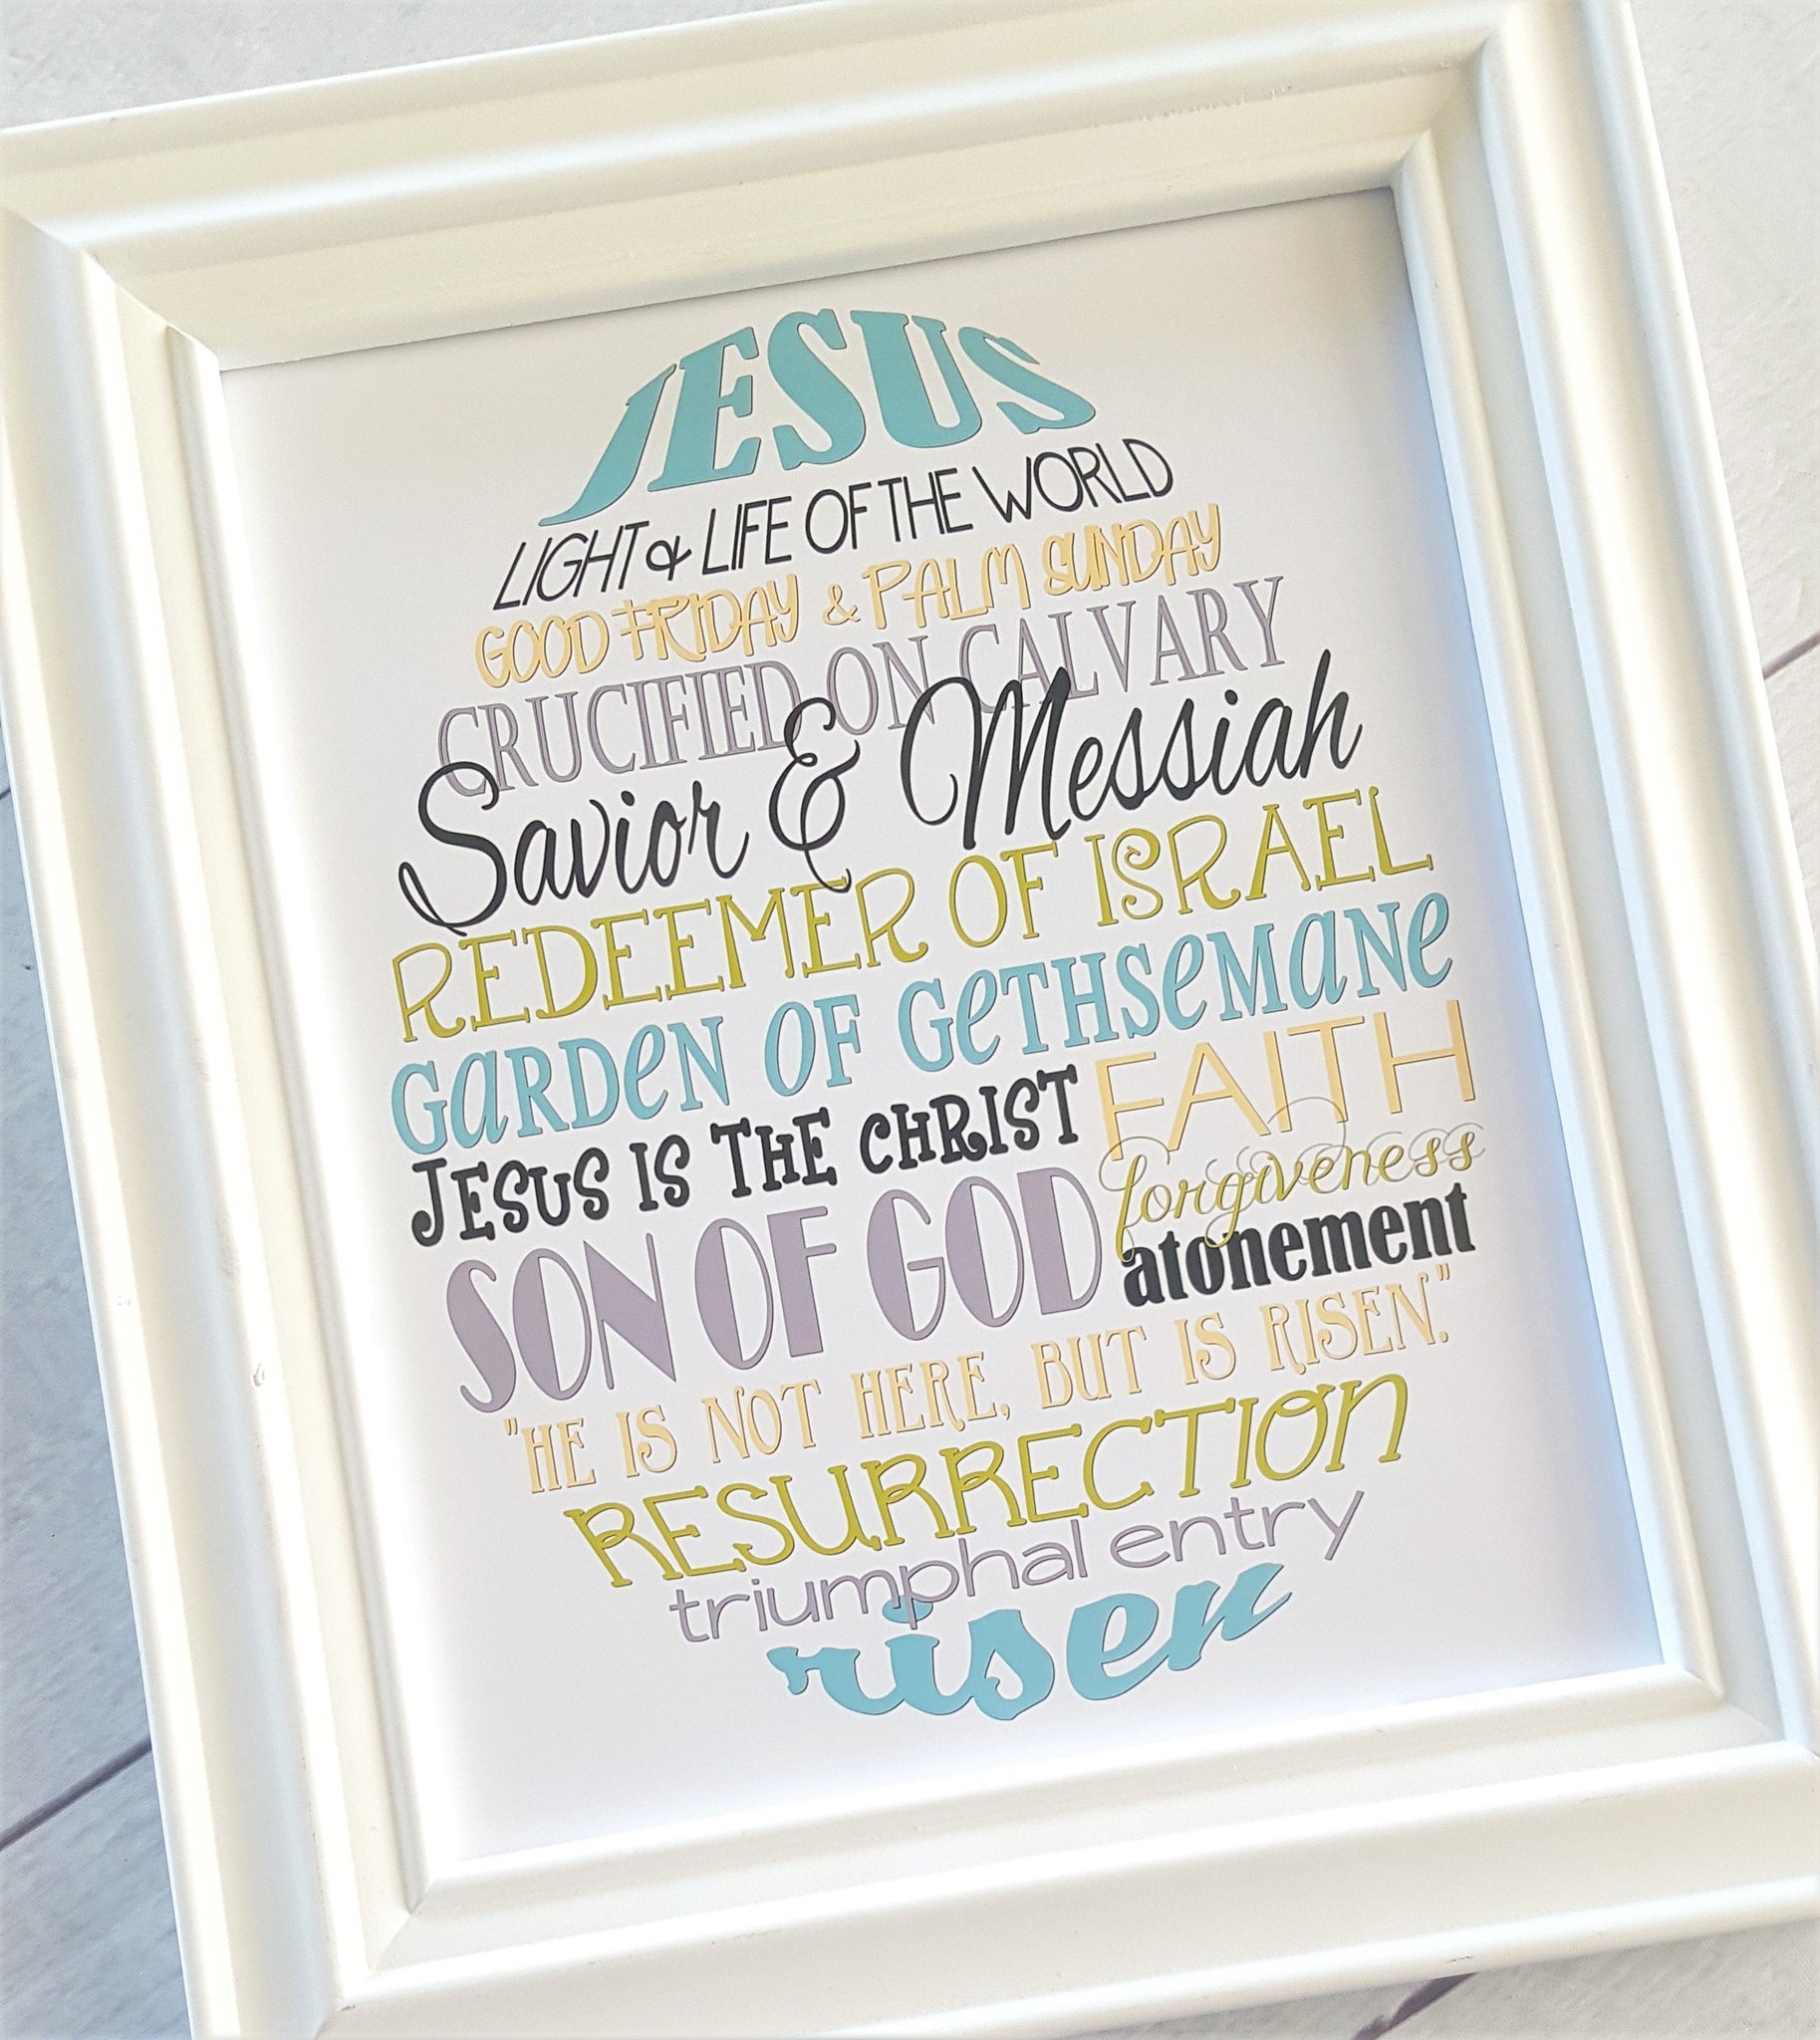 JESUS
LIGHT & LIFE OF THE WORLD
GOOD FRIDAY & PALM SUNDAY
CRUCIFIED ON CALVARY
Savior & Messiah
REDEEMER OF ISRAEL
GARDEN OF GETHSEMANE
JESUS IS THE CHRIST FAITH
forgiveness
SON OF GOD atonement
"HE IS NOT HERE, BUT IS RISEN."
RESURRECTION
triumphal entry
risen